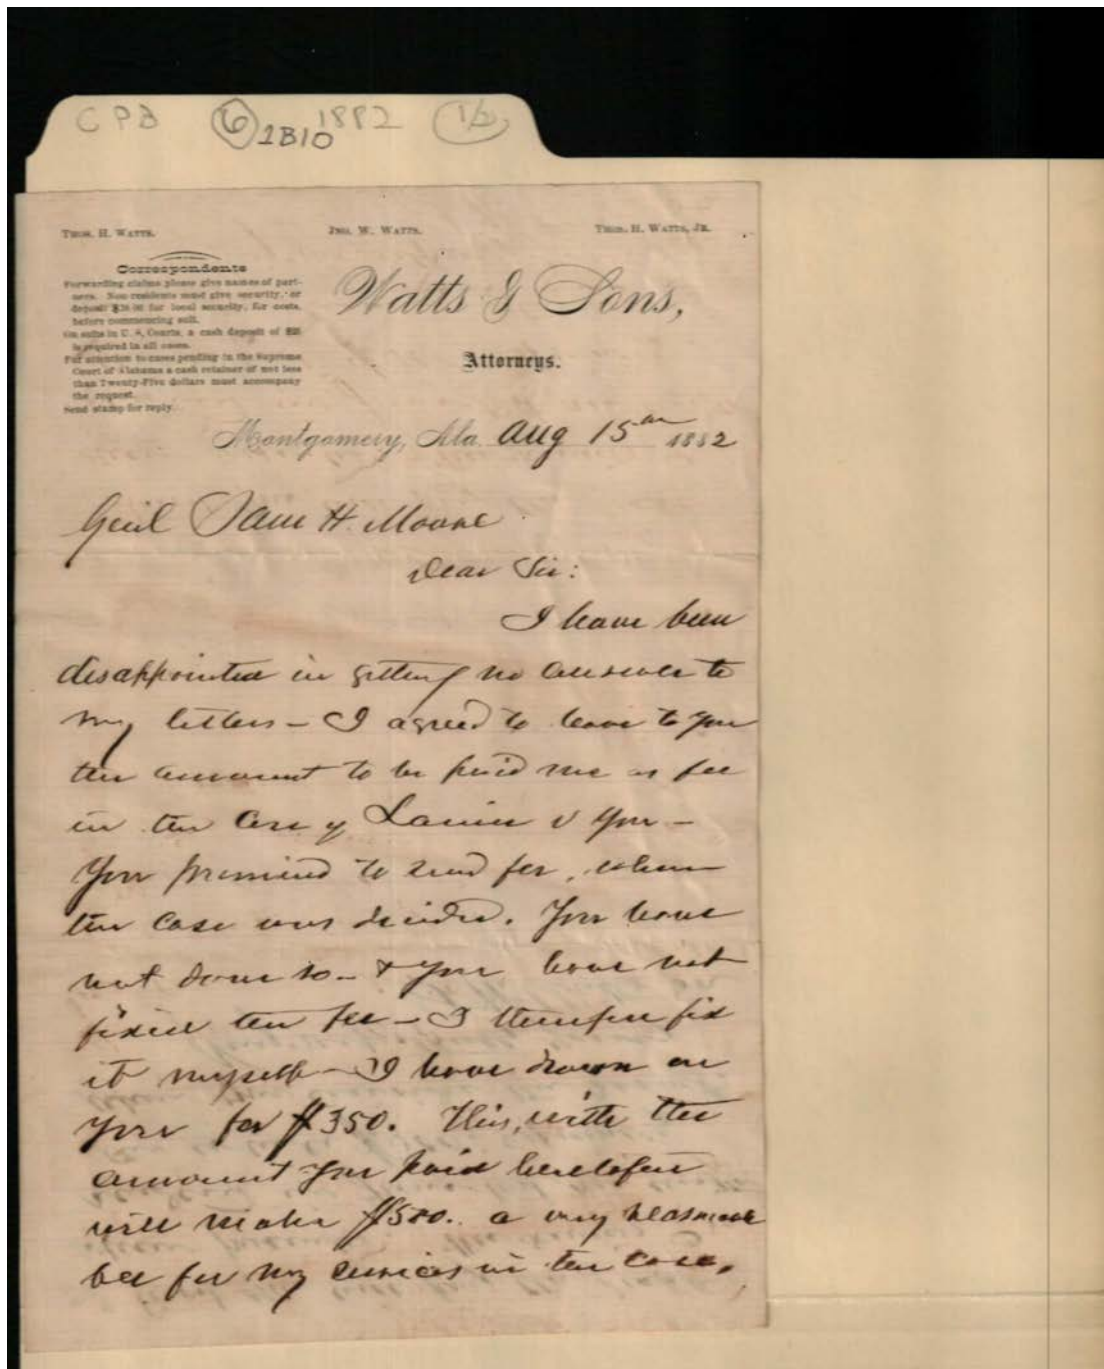 CPB 6 1882 1/2
1B10
THOS. H. WATTS. JNO. W. WATTS. THOS. H. WATTS, JR.
Correspondents
Forwarding claims please give names of part-
ners. Non residents must give security, or
deposit $20.00 for local security, for costs,
before commencing suit.
On suits in U. S. Courts, a cash deposit of
is required in all cases.
For attention to cases pending in the Supreme
Court of Alabama a cash retainer of not less
than Twenty-Five dollars must accompany
the request.
Send stamp for reply.
Watts & Sons,
Attorneys.
Montgomery, Ala. Aug 15th 1882
Genl Sam H. Moore
Dear Sir:
I have been
disappointed in getting no answer to
my letters - I agreed to leave to you
the amount to be paid me as fee
in the case of Lanier v you -
You promised to send fee, when
the case was decided. You have
not done so - & you have not
fixed the fee - I therefore fix
it myself - I have drawn on
you for $350. This, with the
amount you paid heretofore
will make $500. a very reasonable
fee for my services in the case,